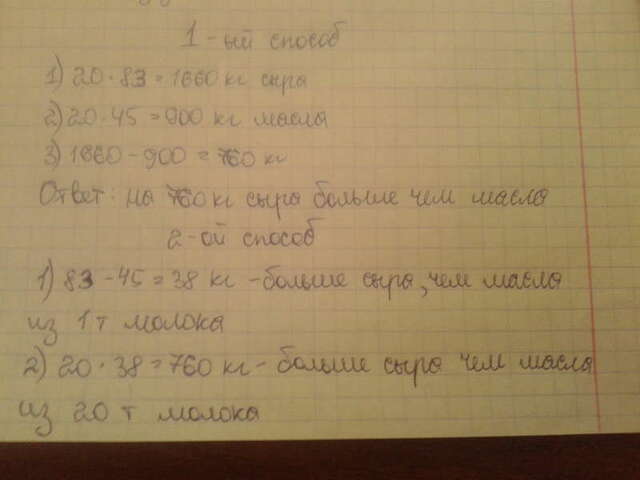 1-ый способ
1) 20·83=1660 кг сыра
2) 20·45=900 кг масла
3) 1660-900=760 кг
Ответ: на 760 кг сыра больше чем масла
2-ой способ
1) 83-45=38 кг -больше сыра, чем масла
из 1 т молока
2) 20·38=760 кг- больше сыра чем масла
из 20 т молока